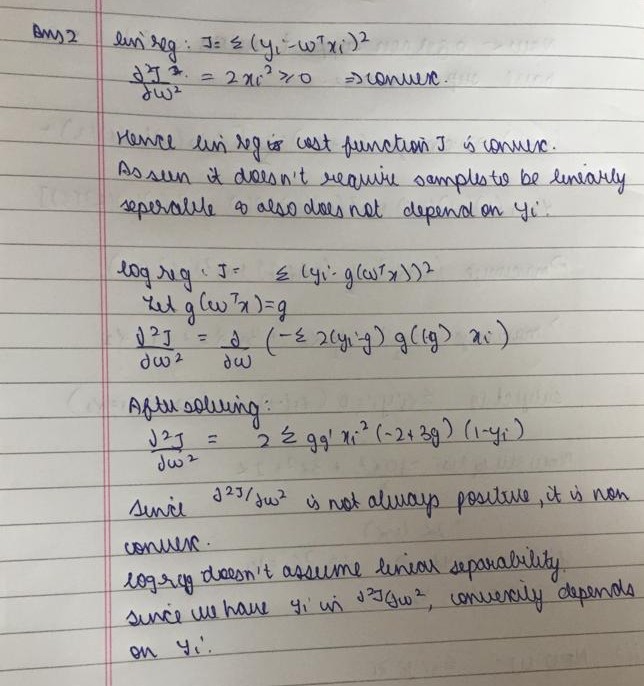 Ans 2 lin reg: J = Σ (yi - wᵀxi)²
∂²J/∂w² = 2xi² ≥ 0 ⇒ convex.
Hence lin reg is cost function J is convex.
As seen it doesn't require samples to be linearly
seperable & also does not depend on yi.
log reg: J = Σ (yi - g(wᵀx))²
Let g(wᵀx) = g
∂²J/∂w² = ∂/∂w (-Σ 2(yi-g) g(1-g) xi)
After solving:
∂²J/∂w² = 2 Σ gg' xi² (-2+3g) (1-yi)
Since ∂²J/∂w² is not always positive, it is non
convex.
log reg doesn't assume linear separability.
Since we have yi in ∂²J/∂w², convexity depends
on yi.